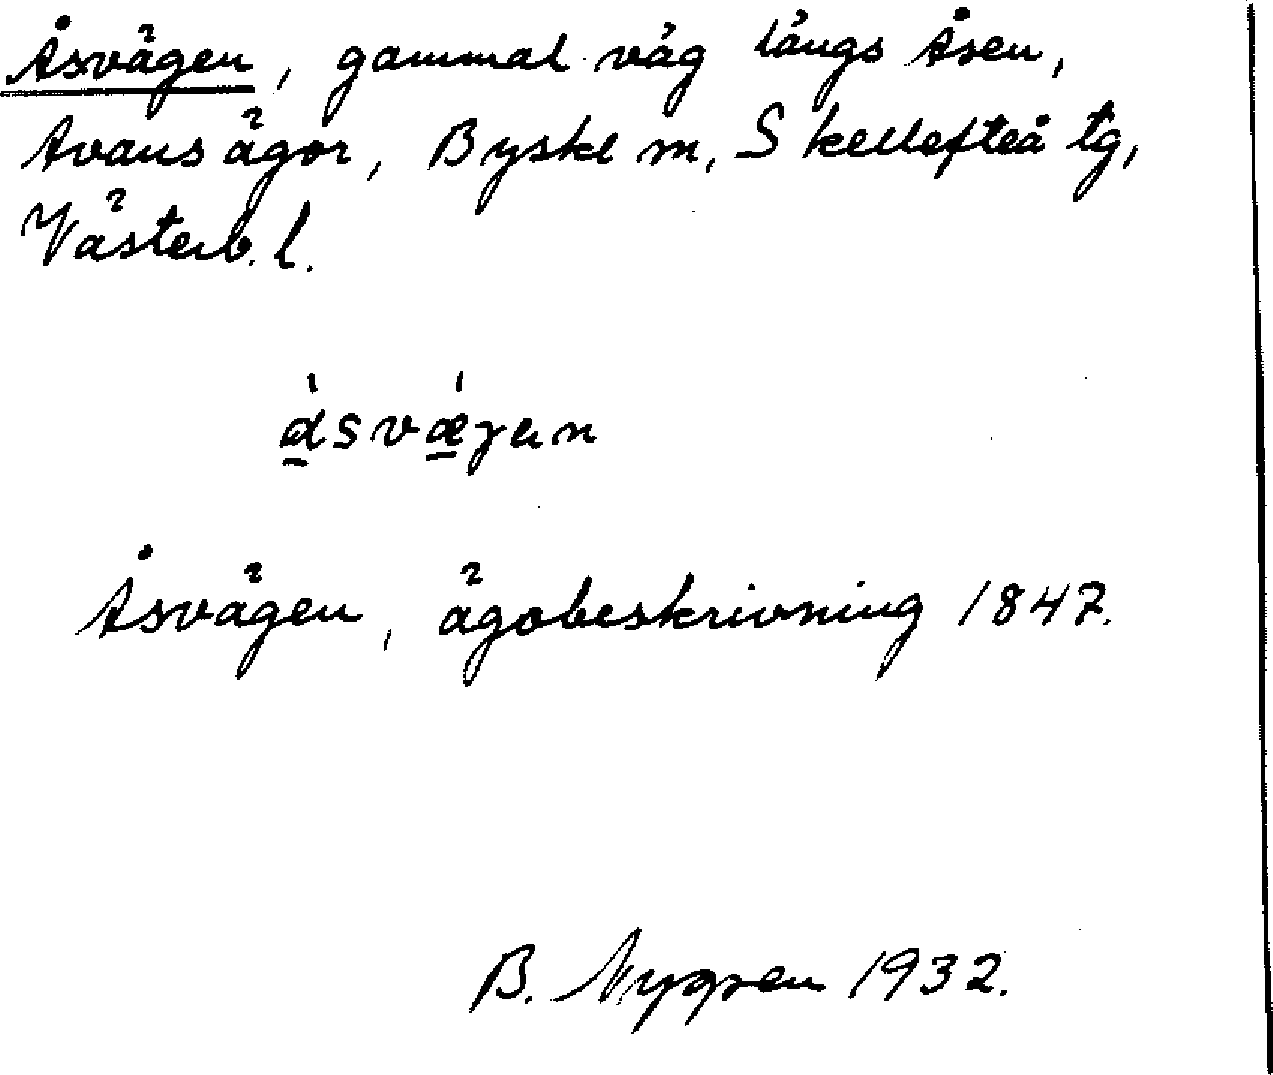 Åsvägen, gammal väg längs Åsen,
Avans ägor, Byske m, Skellefteå tg,
Västerb. l.
åsvægen
Åsvägen, ägobeskrivning 1847.
B. Nygren 1932.